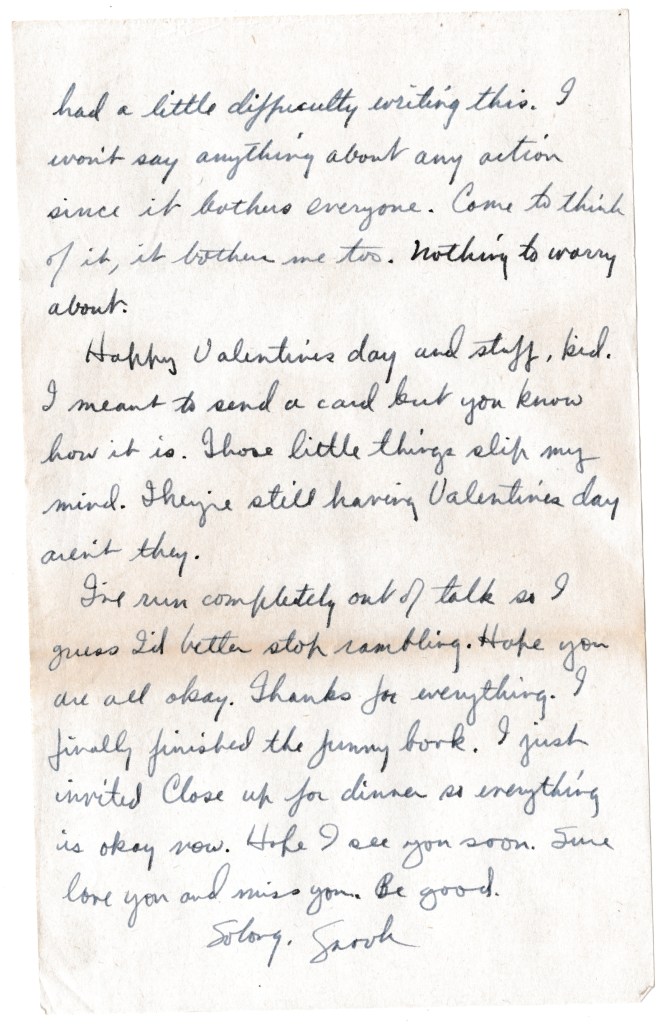 had a little difficulty writing this. I
won't say anything about any action
since it bothers everyone. Come to think
of it, it bothers me too. Nothing to worry
about.
Happy Valentines day and stuff, kid.
I meant to send a card but you know
how it is. Those little things slip my
mind. They're still having Valentines day
aren't they.
I've run completely out of talk so I
guess I'd better stop rambling. Hope you
are all okay. Thanks for everything. I
finally finished the funny book. I just
invited Close up for dinner so everything
is okay now. Hope I see you soon. Sure
love you and miss you. Be good.
So long.